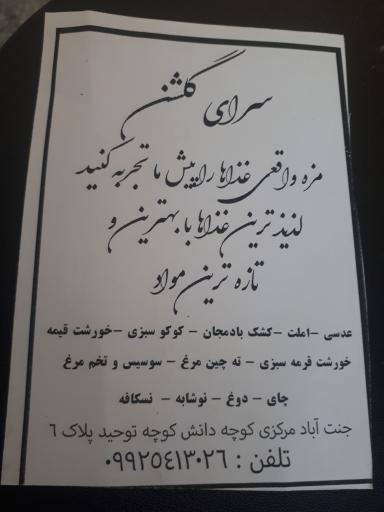 سرای گلشن
مزه واقعی غذاها را پیش ما تجربه کنید
لذیذ ترین غذاها با بهترین و
تازه ترین مواد
عدسی - املت - کشک بادمجان - کوکو سبزی - خورشت قیمه
خورشت قرمه سبزی - ته چین مرغ - سوسیس و تخم مرغ
چای - دوغ - نوشابه - نسکافه
جنت آباد مرکزی کوچه دانش کوچه توحید پلاک ٦
تلفن : ٠٩٩٢٥٤١٣٠٢٦